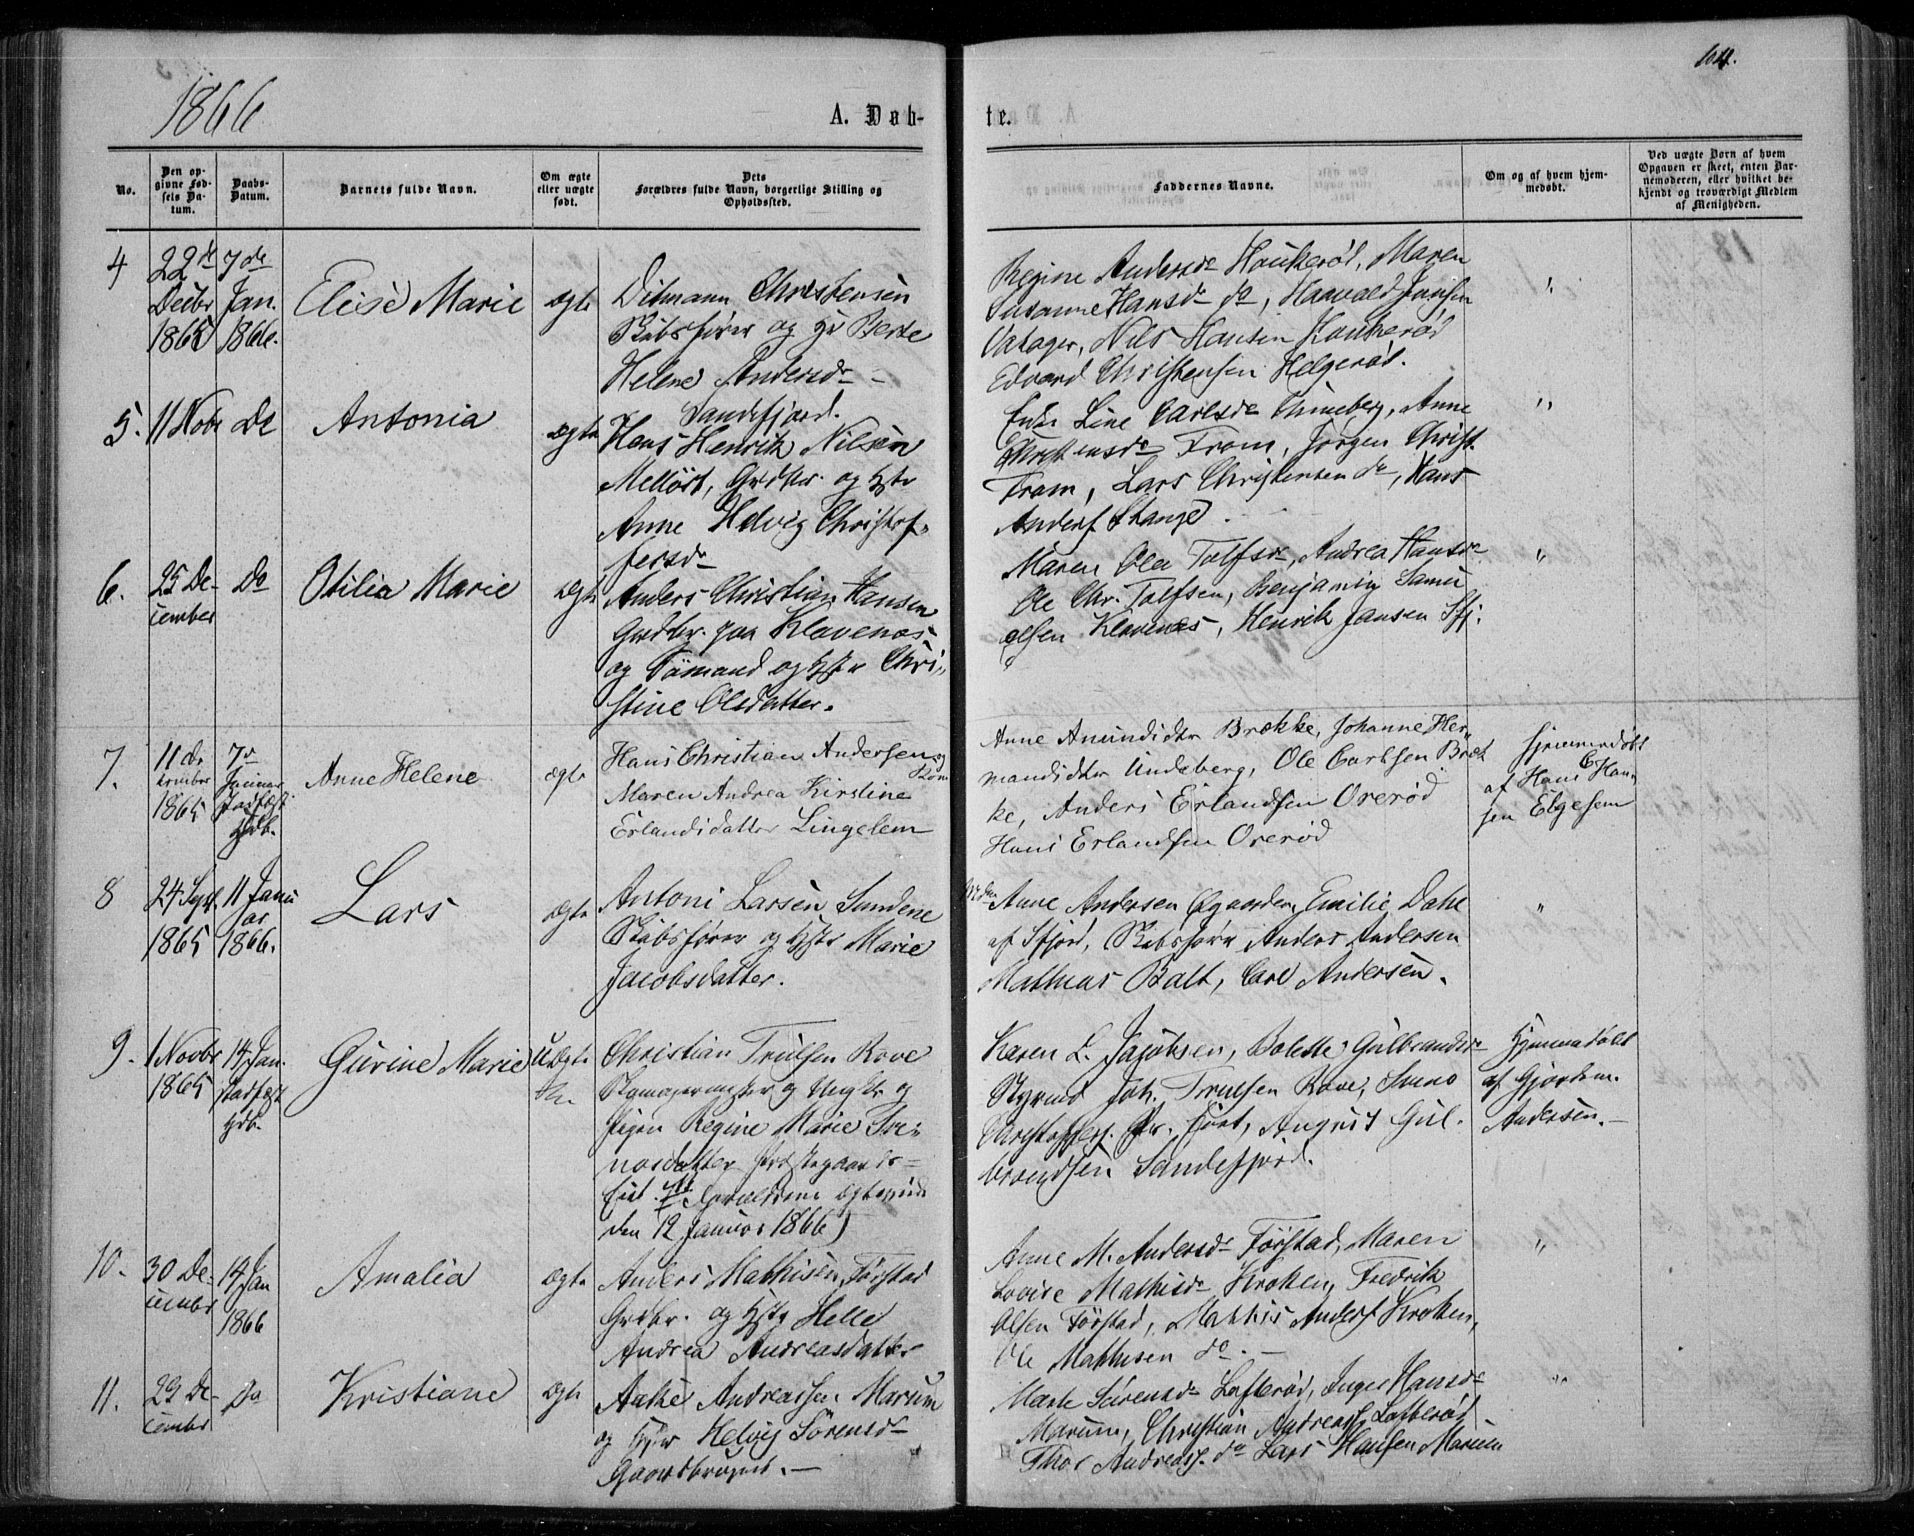 1866
104.
A. Døb-
te.
No.
Den op-
givne Fød-
sels Da-
tum.
Daabs-
Datum.
Barnets fulde Navn.
Om ægte
eller uægte
født.
Dets
Forældres fulde Navn, borgerlige Stilling og
Opholdssted.
Faddernes Navne.
Om og af hvem hjem-
medøbt.
Ved uægte Børn af hvem
Opgaven er skeet, enten Bar-
nemoderen, eller hvilket be-
kjendt og troværdigt Medlem
af Menigheden.
4
22de
Decbr
1865
7de
Jan.
1866.
Elise Marie
ægte
Ditmann Christensen
Skibsfører og Hu Berte
Helene Andersdr
Sandefjord.
Regine Andersdr Haukerød, Maren
Susanne Hansdr do, Haavald Jansen
Vatager, Nils Hansen Haukerød
Edvard Christensen Helgerød.
"
5.
11 Novbr
Do
Antonia
ægte
Hans Henrik Nilsen
Melløst, Grdbr. og Hstr
Anne Hedvig Christof-
fersdr
Enke Line Carlsdr Thineberg, Anne
Christensdr Fram, Jørgen Christ.
Fram, Lars Christensen do, Hans
Anders Stange.
"
6.
25 De-
cember
Do
Otilia Marie
Ægte
Anders Christian Hansen
Grdbr. paa Klavenæs
og Sømand og Hstr Chri-
stine Olsdatter.
Maren Olea Tolfsdr, Andrea Hansdr
Ole Chr. Tolfsen, Benjamin Samu
elsen Klavenæs, Henrik Jansen Sfj.
"
7.
11 De
cember
1865
7de
Januar
Stadfæst
Hjdb.
Anne Helene
ægte
Hans Christian Andersen og
Maren Andrea Kirstine
Erlandsdatter Lingelem
Anne Amundsdtr Brække, Johanne Her-
mandsdtr Undeberg, Ole Carlsen Bræk
ke, Anders Erlandsen Orerød
Hans Erlandsen Orerød
Hjemmedøbt
af Hans Chr Han
sen Elgesem
8
24 Sept.
1865
11 Janu
ar
1866.
Lars
ægte
Antoni Larsen Sundene
Skibsfører og Hstr Marie
Jacobsdatter.
Anne Andersen Øgaarden, Emilie Dahl
af Sfjord, Skibsfører Anders Andersen
Mathias Balt, Carl Andersen.
"
9.
1 Novbr
1865
14 Jan.
Stadfæst
Hjdb.
Gurine Marie
Uægte
Christian Trulsen Rove
Skomagermester og Ungkl og
Pigen Regine Marie Sve-
nosdatter Præstegaards-
Forældrene ægteviede
den 12 Januar 1866)
Karen L. Jacobsen, Bolette Gulbrandsdr
Styrmd Joh. Trulsen Rove, Sveno
Christoffers. Pr. Hjort, August Gul-
brandsen Sandefjord.
Hjemmedøbt
af Gjordem.
Andersen.
10.
30 De-
cembr
14 Jan
1866
Amalia
ægte
Anders Mathisen Førstad
Grdbr. og Hstr Helle
Andrea Andreasdatter
Anne M. Andersdr Førstad, Maren
Lovise Mathisdr Kroken, Fredrik
Olsen Førstad, Mathis Anders Kroken,
Ole Mathisen do.
"
11.
29 De-
cembr
Do
Kristiane
ægte
Anthe Andreassen Marum
og Hstr Helvig Sørensdr
Gaardbruger.
Marte Sørensdr Lofterød, Inger Hansdr
Marum, Christian Andreass. Lofterød
Thor Andreass. do Lars Hansen Marum
"